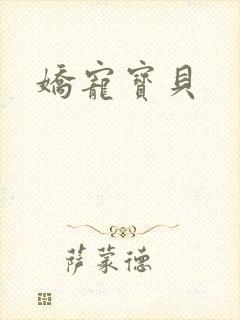 嬌寵寶貝
萨蒙德